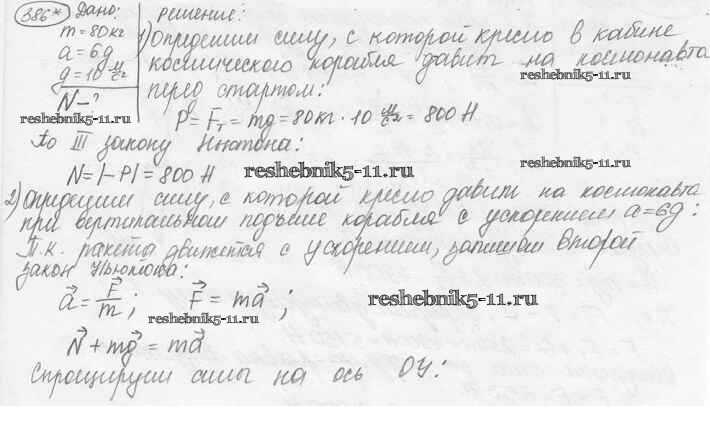 386*
Дано:
m = 80 кг
a = 6g
g = 10 м/с²
N - ?
reshebnik5-11.ru
Решение:
1) Определим силу, с которой кресло в кабине
космического корабля давит на космонавта
reshebnik5-11.ru
перед стартом:
P = Fт = mg = 80 кг · 10 м/с² = 800 Н
По III закону Ньютона:
reshebnik5-11.ru
N = |-P| = 800 Н
reshebnik5-11.ru
2) Определим силу, с которой кресло давит на космонавта
при вертикальном подъёме корабля с ускорением a = 6g:
Т.к. ракета движется с ускорением, запишем второй
закон Ньютона:
a⃗ = F⃗/m; F⃗ = ma⃗;
reshebnik5-11.ru
reshebnik5-11.ru
N⃗ + mg⃗ = ma⃗
Спроецируем силы на ось OY: